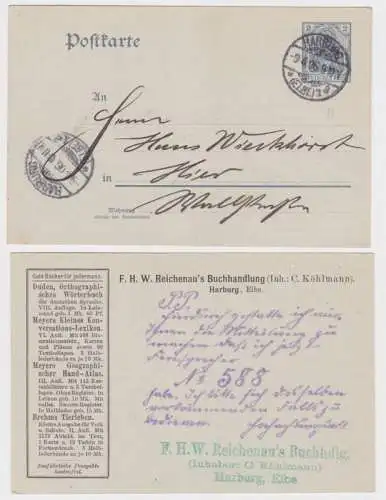 Postkarte
2
2
HARBURG
* (ELBE) 1 d
An
Herrn
Hans Wieckhorst
in
Hier
Wallstraße
Wohnung
HARBURG
Gute Bücher für jedermann.
Duden, Orthographi-
sches Wörterbuch
der deutschen Sprache.
VIII. Auflage. In Lein-
wand geb. 1 Mk. 60 Pf.
Meyers Kleines Kon-
versations-Lexikon.
VI. Aufl. Mit 168 Illu-
strationstafeln, Karten
und Plänen sowie 88
Textbeilagen. 3 Halb-
lederbände zu je 10 Mk.
Meyers Geographi-
scher Hand-Atlas.
III. Aufl. Mit 115 Kar-
tenblättern u. 5 Textbei-
lagen. Ohne Register. In
Leinen geb. 10 Mk. Mit
sämtl. Namen-Register
in Halbleder geb. 15 Mk.
Brehms Tierleben.
Kleine Ausgabe für Volk
u. Schule. II. Aufl. Mit
1179 Abbild. im Text,
1 Karte u. 19 Tafeln in
Farbendruck. 3 Halb-
lederbände zu je 10 Mk.
Ausführliche Prospekte
kostenfrei.
F. H. W. Reichenau's Buchhandlung (Inh: C. Köhlmann).
Harburg, Elbe.
P.P.
Hierdurch gestatte ich mir
Ihnen die Mitteilung zu
machen daß ich jetzt
Fernsprecher
No 588
habe. Ich bitte sich desselben
vorkommenden Falls zu
bedienen. Hochachtungsvoll
F. H. W. Reichenau's Buchhdlg.
(Inhaber: C Köhlmann)
Harburg, Elbe